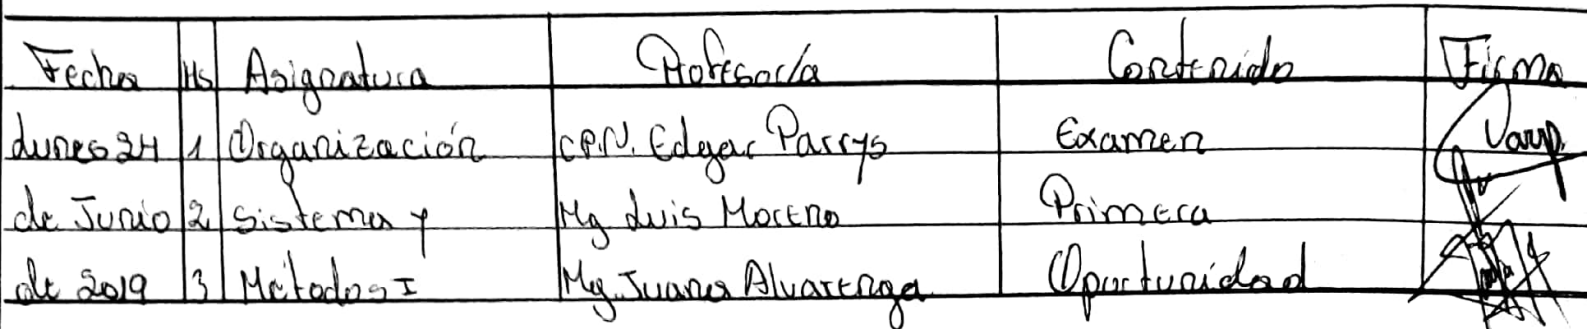 Fecha Hs Asignatura Profesor/a Contenido Firma
Lunes 24 1 Organización C.P.N. Edgar Parrys Examen
de Junio 2 Sistema y Mg Luis Moreno Primera
de 2019 3 Métodos I Mg. Juana Alvarenga Oportunidad